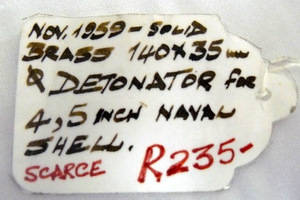 NOV. 1959 - SOLID
BRASS 140X35 mm
& DETONATOR for
4,5 INCH NAVAL
SHELL.
SCARCE R235-